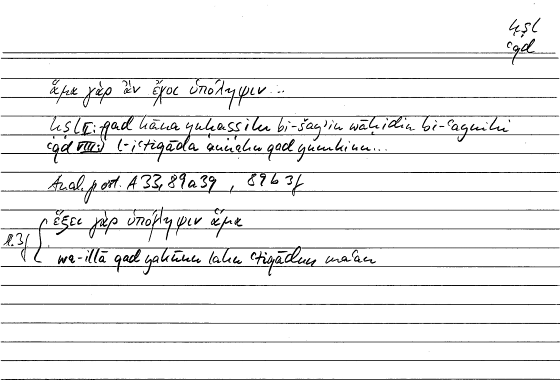 ḥṣl
ʿqd
ἅμα γὰρ ἂν ἔχοι ὑπόληψιν...
ḥṣl II: qad kāna yuḥaṣṣilu bi-šayʾin wāḥidin bi-ʿaynihi
ʿqd VIII: l-iʿtiqāda annahu qad yumkinu...
Anal. post. A 33, 89a39 , 89b 3f
ἕξει γὰρ ὑπόληψιν ἅμα
3f
wa-illā qad yakūnu lahu ʿtiqādun maʿan